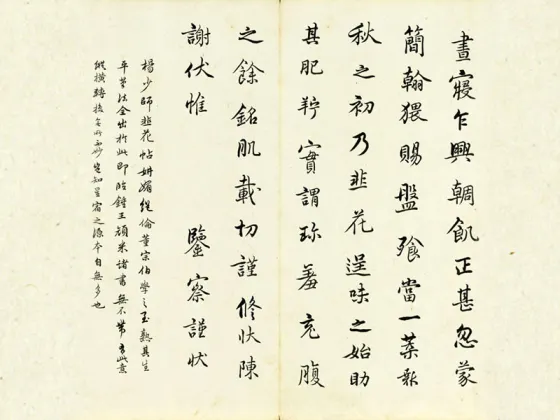 晝寢乍興輖飢正甚忽蒙
簡翰猥賜盤飧當一葉報
秋之初乃韭花逞味之始助
其肥羜實謂珍羞充腹
之餘銘肌載切謹修狀陳
謝伏惟 鑒察謹狀
楊少師韭花帖妍媚經倫董宗伯學之至熟其生
平筆法全出於此即臨鍾王顏米諸書無不帶有此意
縱橫轉換各有妙處知星宿之源本自無多也